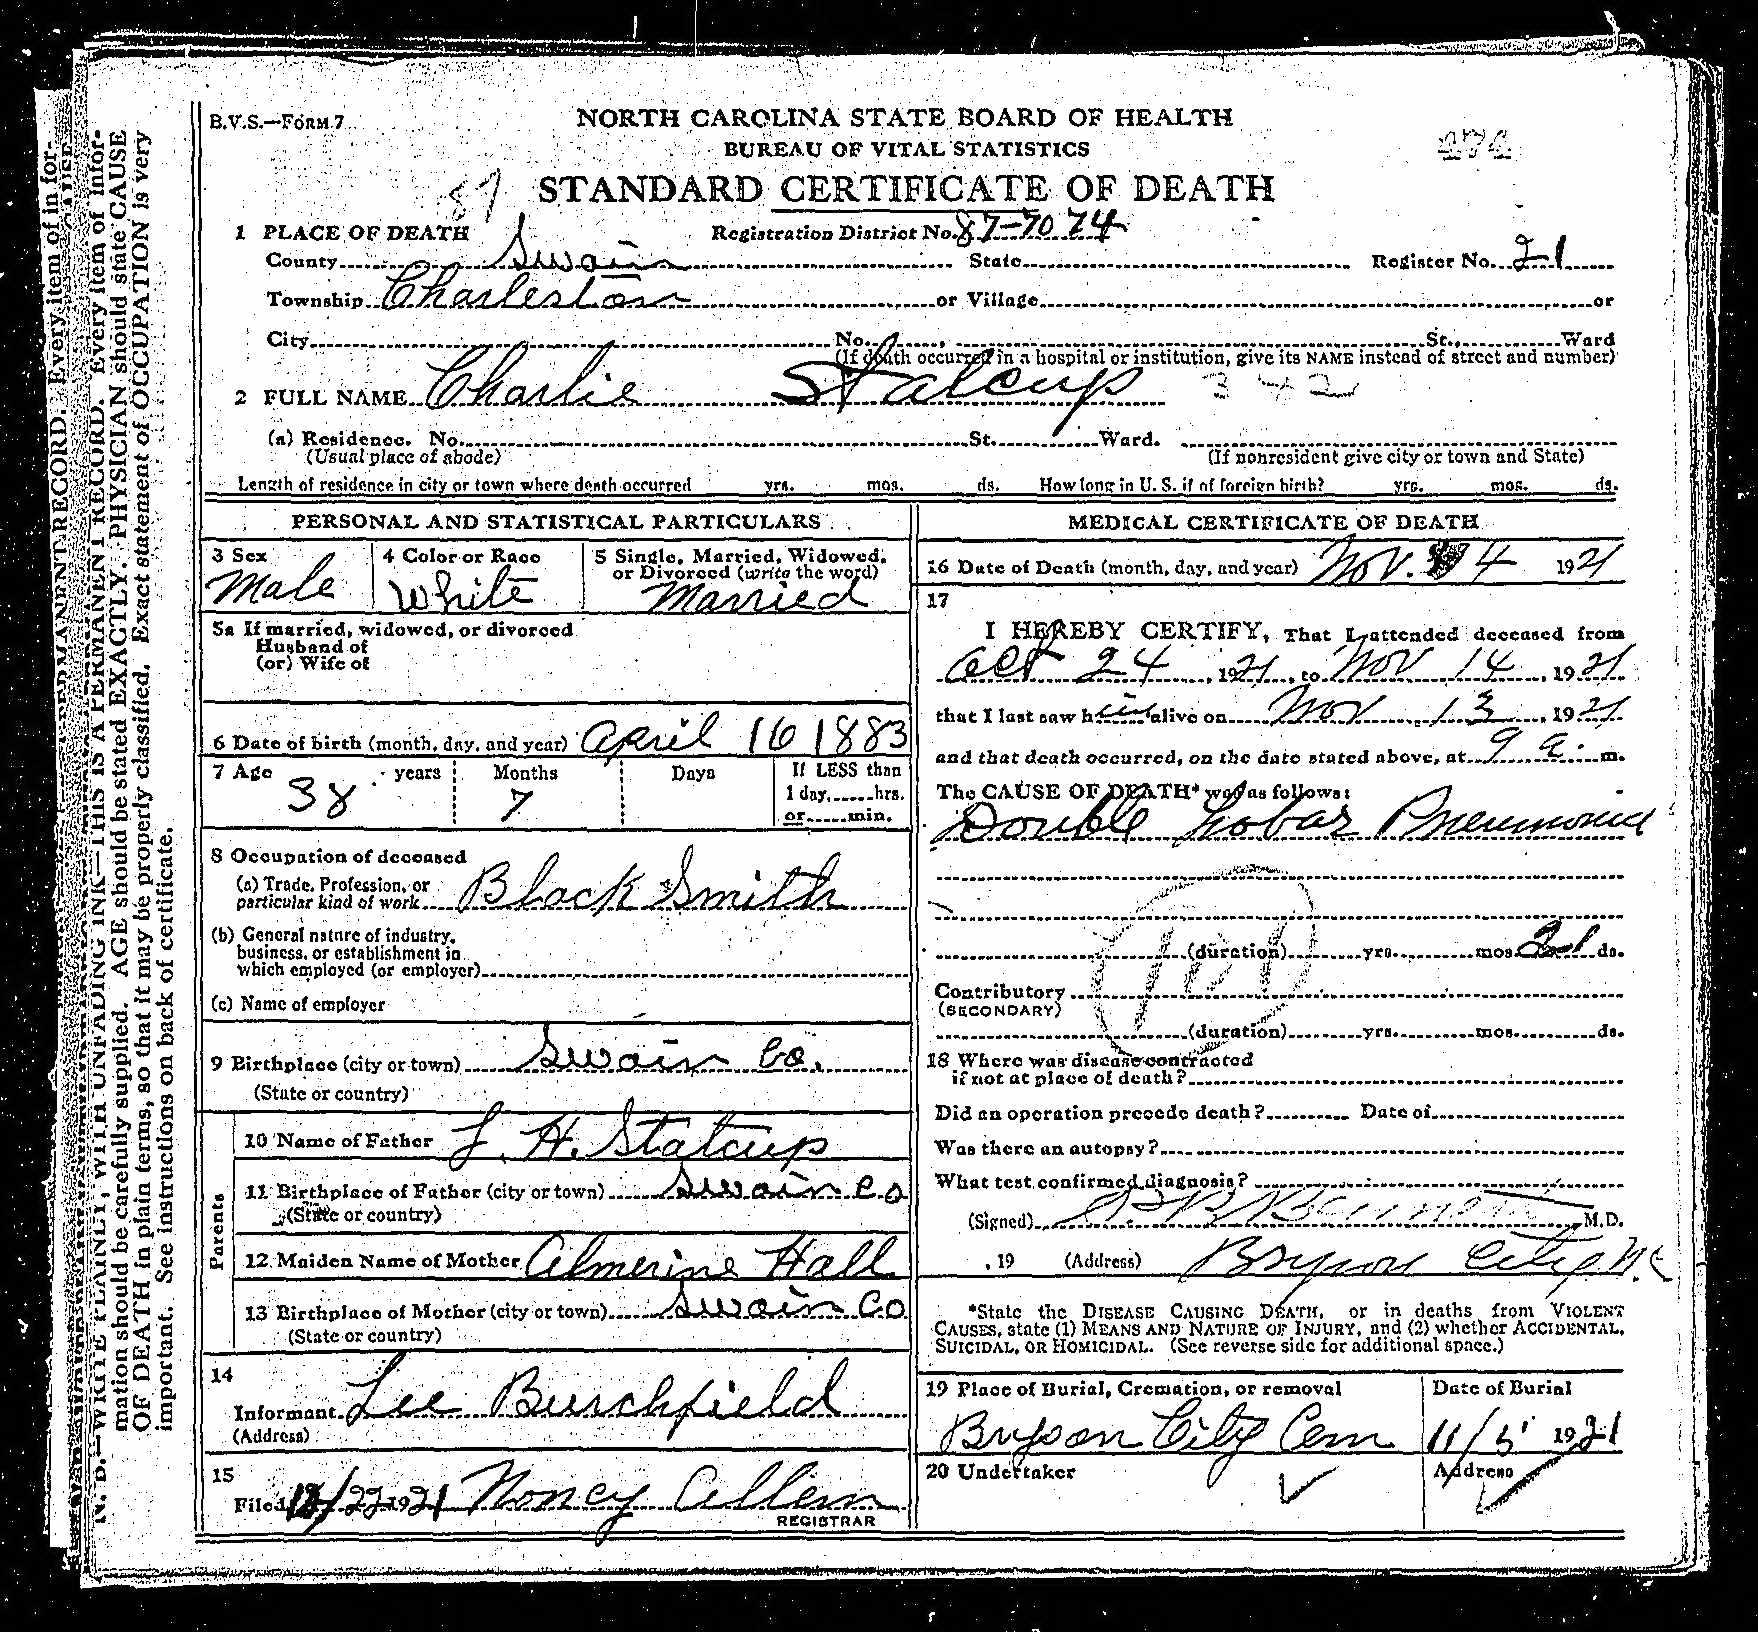 B.V.S.—FORM 7
NORTH CAROLINA STATE BOARD OF HEALTH
BUREAU OF VITAL STATISTICS
STANDARD CERTIFICATE OF DEATH
87
1 PLACE OF DEATH Registration District No. 87-7074
County Swain State Register No. 21
Township Charleston or Village or
City No. St., Ward
(If death occurred in a hospital or institution, give its NAME instead of street and number)
2 FULL NAME Charlie Stalcup 342
(a) Residence. No. St. Ward.
(Usual place of abode) (If nonresident give city or town and State)
Length of residence in city or town where death occurred yrs. mos. ds. How long in U. S. if of foreign birth? yrs. mos. ds.
PERSONAL AND STATISTICAL PARTICULARS
3 Sex 4 Color or Race 5 Single, Married, Widowed,
or Divorced (write the word)
Male White Married
5a If married, widowed, or divorced
Husband of
(or) Wife of
6 Date of birth (month, day, and year) April 16 1883
7 Age 38 years Months 7 Days If LESS than
1 day, hrs.
or min.
8 Occupation of deceased
(a) Trade, Profession, or
particular kind of work Black Smith
(b) General nature of industry,
business, or establishment in
which employed (or employer)
(c) Name of employer
9 Birthplace (city or town) Swain Co.
(State or country)
Parents
10 Name of Father J. H. Stalcup
11 Birthplace of Father (city or town) Swain Co
(State or country)
12 Maiden Name of Mother Almerine Hall
13 Birthplace of Mother (city or town) Swain Co
(State or country)
14
Informant Lee Burchfield
(Address)
15
Filed 12/22 1921 Noncy Allem
REGISTRAR
MEDICAL CERTIFICATE OF DEATH
16 Date of Death (month, day, and year) Nov. 14 1921
17
I HEREBY CERTIFY, That I attended deceased from
Oct 24, 1921, to Nov 14, 1921
that I last saw him alive on Nov 13, 1921
and that death occurred, on the date stated above, at 9 a. m.
The CAUSE OF DEATH* was as follows:
Double Lobar Pneumonia
(duration) yrs. mos. 21 ds.
Contributory
(SECONDARY)
(duration) yrs. mos. ds.
18 Where was disease contracted
if not at place of death?
Did an operation precede death? Date of
Was there an autopsy?
What test confirmed diagnosis?
(Signed) M.D.
, 19 (Address) Bryson City N.C
*State the DISEASE CAUSING DEATH, or in deaths from VIOLENT
CAUSES, state (1) MEANS AND NATURE OF INJURY, and (2) whether ACCIDENTAL,
SUICIDAL, OR HOMICIDAL. (See reverse side for additional space.)
19 Place of Burial, Cremation, or removal Date of Burial
Bryson City Cem 11/5 1921
20 Undertaker Address
N. B.—WRITE PLAINLY, WITH UNFADING INK—THIS IS A PERMANENT RECORD. Every item of infor-
mation should be carefully supplied. AGE should be stated EXACTLY. PHYSICIAN should state CAUSE
OF DEATH in plain terms, so that it may be properly classified. Exact statement of OCCUPATION is very
important. See instructions on back of certificate.